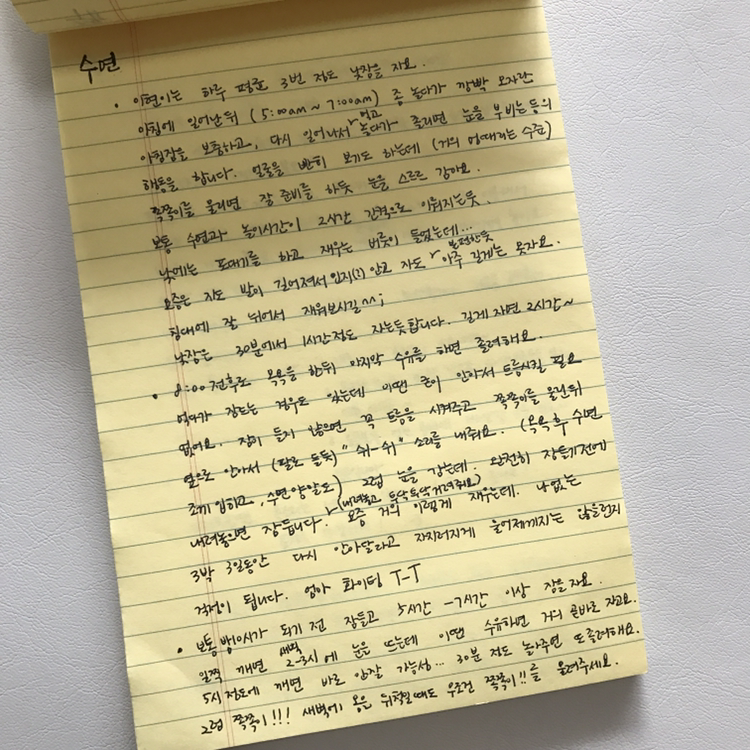 수면
• 이현이는 하루 평균 3번 정도 낮잠을 자요.
아침에 일어난뒤 (5:00am ~ 7:00am) 좀 놀다가 깜빡 모자란
아침잠을 보통하고, 다시 일어나서 먹고 놀다가 졸리면 눈을 부비는 등의
행동을 합니다. 얼굴을 빤히 보기도 하는데 (거의 어때리는 수준)
쪽쪽이를 물리면 잘 준비를 하듯 눈을 스르르 감아요.
보통 수면과 놀이시간이 2시간 간격으로 이뤄지는듯.
낮에는 포대기를 하고 재우는 버릇이 들었는데...
요즘은 지도 발이 길어져서 인지(?) 안고 자도 불편한듯 아주 길게는 못자요.
침대에 잘 뉘어서 재워보시길^^;
낮잠은 30분에서 1시간정도 자는듯합니다. 길게 자면 2시간~
• 8:00 전후로 목욕을 한뒤 마지막 수유를 하면 졸려해요.
먹다가 잠드는 경우도 있는데 이땐 굳이 안아서 트름시킬 필요
없어요. 잠이 들지 않으면 꼭 트름을 시켜주고 쪽쪽이를 물린뒤
옆으로 안아서 (팔로 들듯) "쉬-쉬" 소리를 내줘요. (목욕 후 수면
조끼 입히고, 수면양말도) 그럼 눈을 감는데. 완전히 잠들기전에
내려놓으면 잠듭니다. (내려놓고 토닥토닥거려줘요) 요즘 거의 이렇게 재우는데. 나없는
3박 3일동안 다시 안아달라고 자지러지게 울어제끼지는 않을런지
걱정이 됩니다. 엄마 화이팅 T-T
• 보통 밤 10시가 되기 전 잠들고 5시간 ~7시간 이상 잠을 자요.
일찍 깨면 새벽 2-3시에 눈을 뜨는데 이땐 수유하면 거의 곧바로 자고요.
5시 정도에 깨면 바로 안잘 가능성... 30분 정도 놀아주면 또 졸려해요.
그럼 쪽쪽이!!! 새벽에 몸을 뒤척일때도 무조건 쪽쪽이!!를 물려주세요.